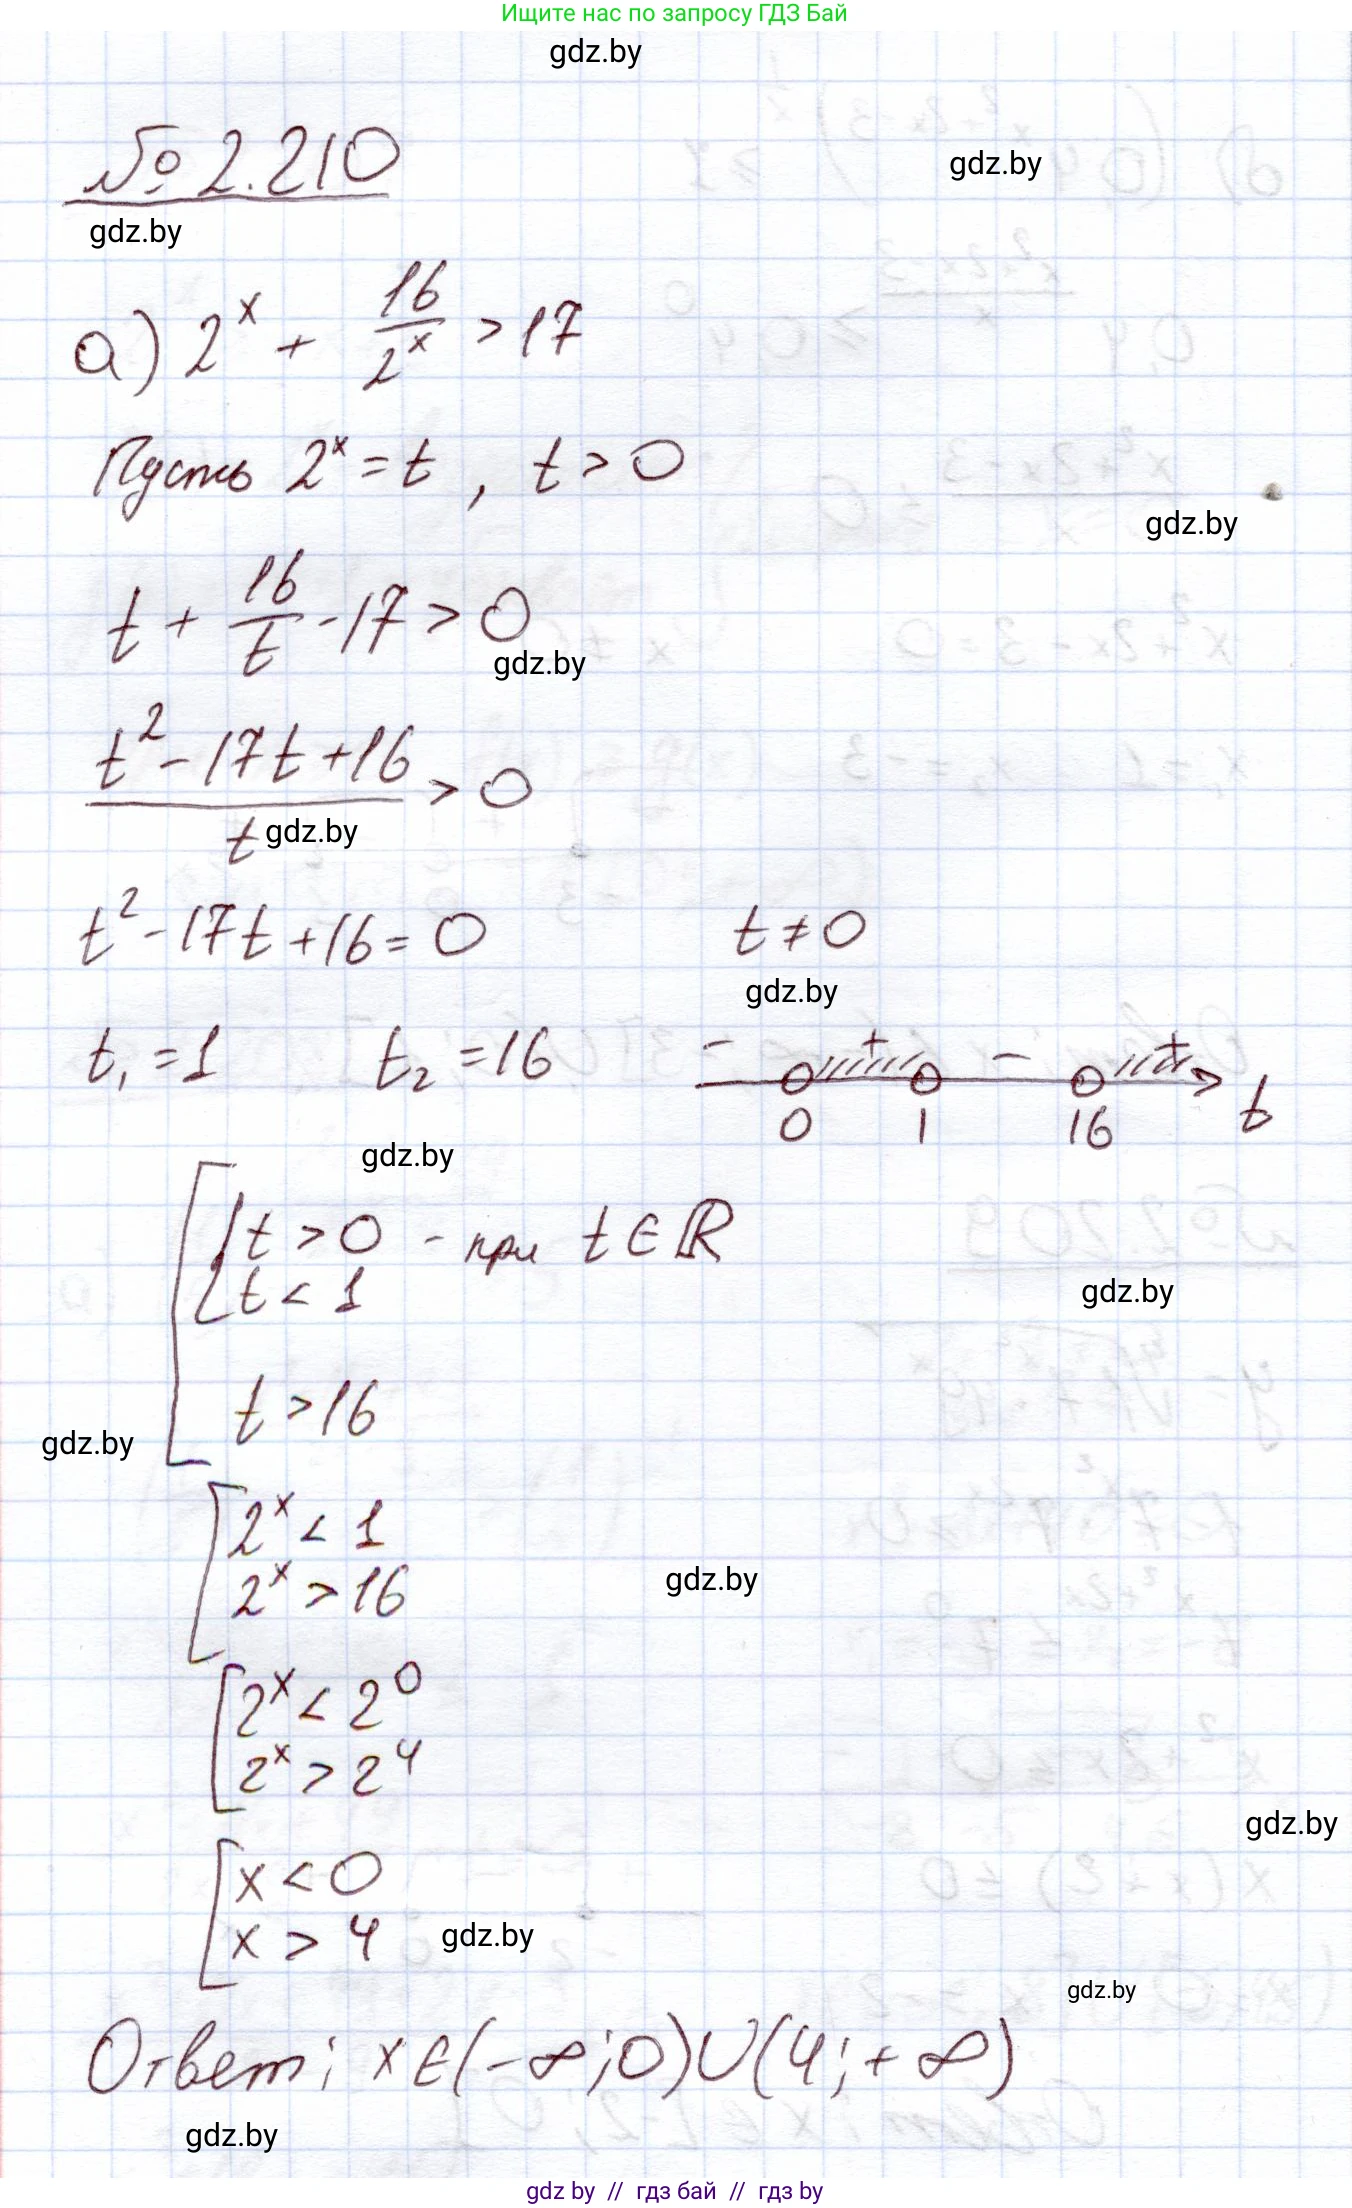 Ищите нас по запросу ГДЗ Бай
gdz.by
№ 2.210
gdz.by
gdz.by
а) 2^x + 16/2^x > 17
Пусть 2^x = t , t > 0
gdz.by
t + 16/t - 17 > 0
gdz.by
(t^2 - 17t + 16)/t > 0
gdz.by
t^2 - 17t + 16 = 0 t ≠ 0
gdz.by
t_1 = 1 t_2 = 16 - + - + t
0 1 16
gdz.by
t > 0 - при t ∈ ℝ
t < 1
gdz.by
t > 16
gdz.by
2^x < 1
2^x > 16
gdz.by
2^x < 2^0
2^x > 2^4
gdz.by
x < 0
x > 4
gdz.by
gdz.by
Ответ: x ∈ (-∞; 0) ∪ (4; +∞)
gdz.by
gdz by // гдз бай // гдз by